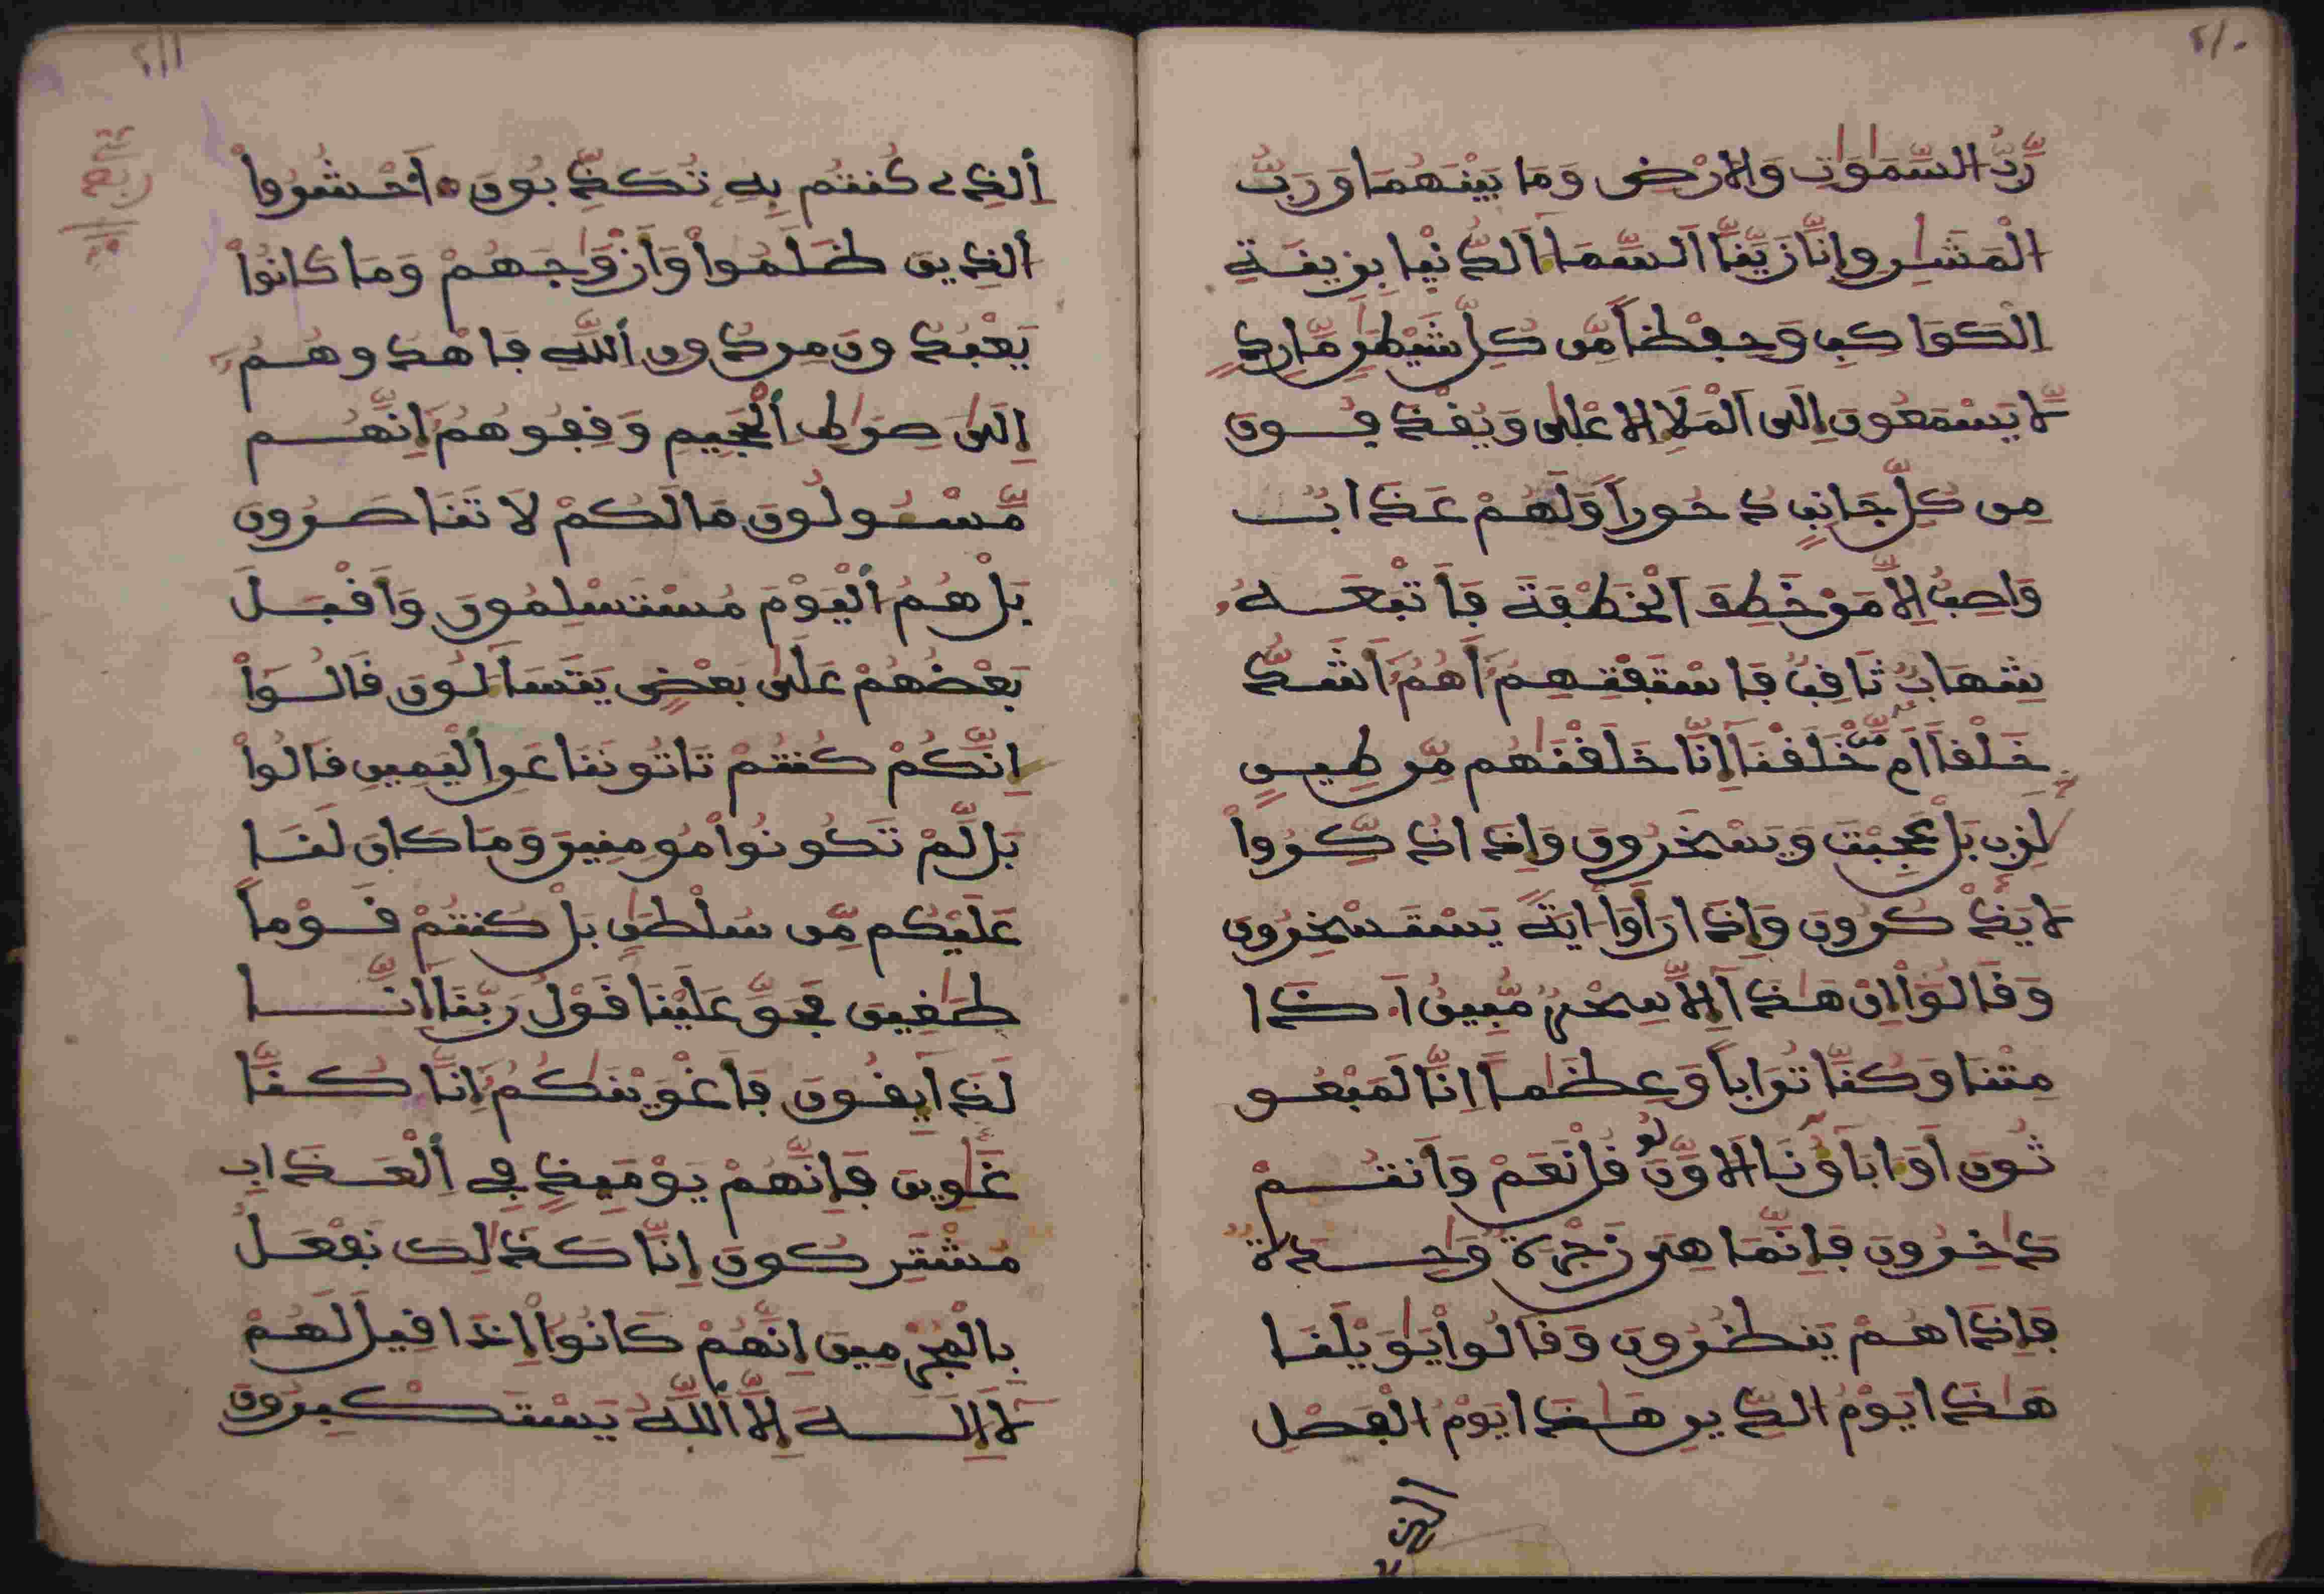 ٢١٠
رَّبُّ السَّمَٰوَٰتِ وَالَارْضِ وَمَا بَيْنَهُمَا وَرَبُّ
الْمَشَٰرِقِ إِنَّا زَيَّنَّا اَلسَّمَآءَ اَلدُّنْيَا بِزِينَةِ
اِلْكَوَاكِبِ وَحِفْظاً مِّن كُلِّ شَيْطَٰنٍ مَّارِدٍ
لَّا يَسْمَعُونَ إِلَى اَلْمَلَإِ الَاعْلَىٰ وَيُقْذَفُونَ
مِن كُلِّ جَانِبٍ دُحُوراً وَلَهُمْ عَذَابٌ
وَاصِبٌ اِلَّا مَنْ خَطِفَ اَلْخَطْفَةَ فَأَتْبَعَهُ
شِهَابٌ ثَاقِبٌ فَاسْتَفْتِهِمُ أَهُمُ أَشَدُّ
خَلْقاً اَم مَّنْ خَلَقْنَا إِنَّا خَلَقْنَٰهُم مِّن طِينٍ
لَّازِبٍ بَلْ عَجِبْتَ وَيَسْخَرُونَ وَإِذَا ذُكِّرُواْ
لَا يَذْكُرُونَ وَإِذَا رَأَوَاْ ايَةً يَسْتَسْخِرُونَ
وَقَالُوٓاْ إِنْ هَٰذَآ إِلَّا سِحْرٌ مُّبِينٌ اَ۟ذَا
مِتْنَا وَكُنَّا تُرَاباً وَعِظَٰماً اِنَّا لَمَبْعُو
ثُونَ أَوَءَابَآؤُنَا اَلَاوَّلُونَ قُلْ نَعَمْ وَأَنتُمْ
دَٰخِرُونَ فَإِنَّمَا هِيَ زَجْرَةٌ وَٰحِدَةٌ
فَإِذَا هُمْ يَنظُرُونَ وَقَالُواْ يَٰوَيْلَنَا
هَٰذَا يَوْمُ الدِّينِ هَٰذَا يَوْمُ الْفَصْلِ
الذي
٢١١
اِلذِے كُنتُم بِهِ تُكَذِّبُونَ اَحْشُرُواْ
اَلذِينَ ظَلَمُواْ وَأَزْوَٰجَهُمْ وَمَا كَانُواْ
يَعْبُدُونَ مِن دُونِ اِللَّهِ فَاهْدُوهُمُ
إِلَىٰ صِرَٰطِ اِلْجَحِيمِ وَقِفُوهُمُ إِنَّهُم
مَّسْـُٔولُونَ مَا لَكُمْ لَا تَنَاصَرُونَ
بَلْ هُمُ اُلْيَوْمَ مُسْتَسْلِمُونَ وَأَقْبَلَ
بَعْضُهُمْ عَلَىٰ بَعْضٍ يَتَسَآءَلُونَ قَالُوٓاْ
إِنَّكُمْ كُنتُمْ تَاتُونَنَا عَنِ اِلْيَمِينِ قَالُواْ
بَل لَّمْ تَكُونُواْ مُومِنِينَ وَمَا كَانَ لَنَا
عَلَيْكُم مِّن سُلْطَٰنٍ بَلْ كُنتُمْ قَوْماً
طَٰغِينَ فَحَقَّ عَلَيْنَا قَوْلُ رَبِّنَآ إِنَّا
لَذَآئِقُونَ فَأَغْوَيْنَٰكُمُ إِنَّا كُنَّا
غَٰوِينَ فَإِنَّهُمْ يَوْمَئِذٍ فِے اِلْعَذَابِ
مُشْتَرِكُونَ إِنَّا كَذَٰلِكَ نَفْعَلُ
بِالْمُجْرِمِينَ إِنَّهُمْ كَانُوٓاْ إِذَا قِيلَ لَهُمْ
لَآ إِلَٰهَ إِلَّا اَللَّهُ يَسْتَكْبِرُونَ